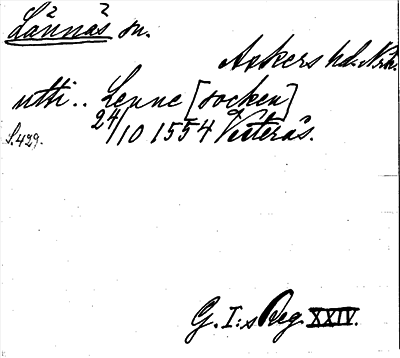 Lännäs sn.
Askers hd. Nrk.
utti.. Lenne [socken]
24/10 1554 Vesterås.
S. 429.
G. I:s Reg. XXIV.